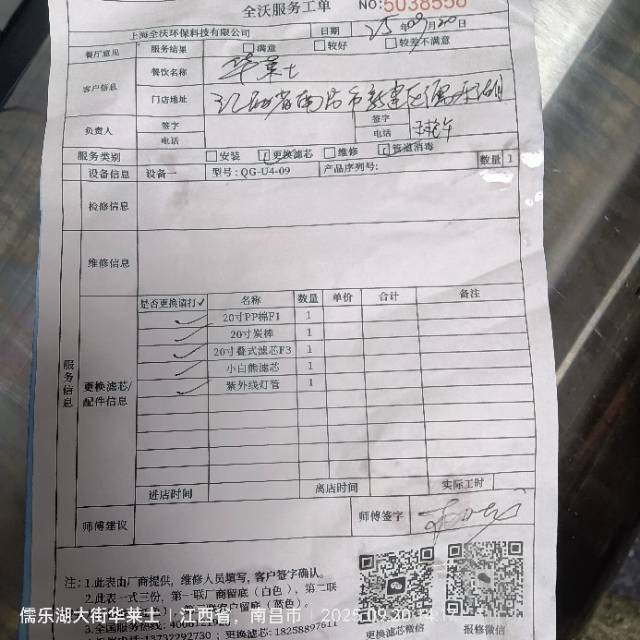 全沃服务工单 NO:5038558
上海全沃环保科技有限公司 日期 25年09月20日
餐厅意见 服务结果 满意 较好 较差不满意
客户信息 餐饮名称 华莱士
门店地址 江西省南昌市新建区儒乐湖
负责人 签字 签字
电话 电话
服务类别 安装 更换滤芯 维修 管道消毒
设备信息 设备一 型号:QG-U4-09 产品序列号: 数量 1
检修信息
维修信息
服务信息
更换滤芯/配件信息
是否更换请打✓ 名称 数量 单价 合计 备注
✓ 20寸PP棉F1 1
✓ 20寸炭棒 1
✓ 20寸叠式滤芯F3 1
✓ 小白熊滤芯 1
✓ 紫外线灯管 1
进店时间 离店时间 实际工时
师傅建议 师傅签字
注:1.此表由厂商提供,维修人员填写,客户签字确认。
2.此表一式三份,第一联厂商留底(白色),第二联
客户留底(蓝色)。
3.全国服务热线:400
13732292730;更换滤芯:18258897611
更换滤芯微信 报修微信
儒乐湖大街华莱士 | 江西省,南昌市 | 2025.09.20